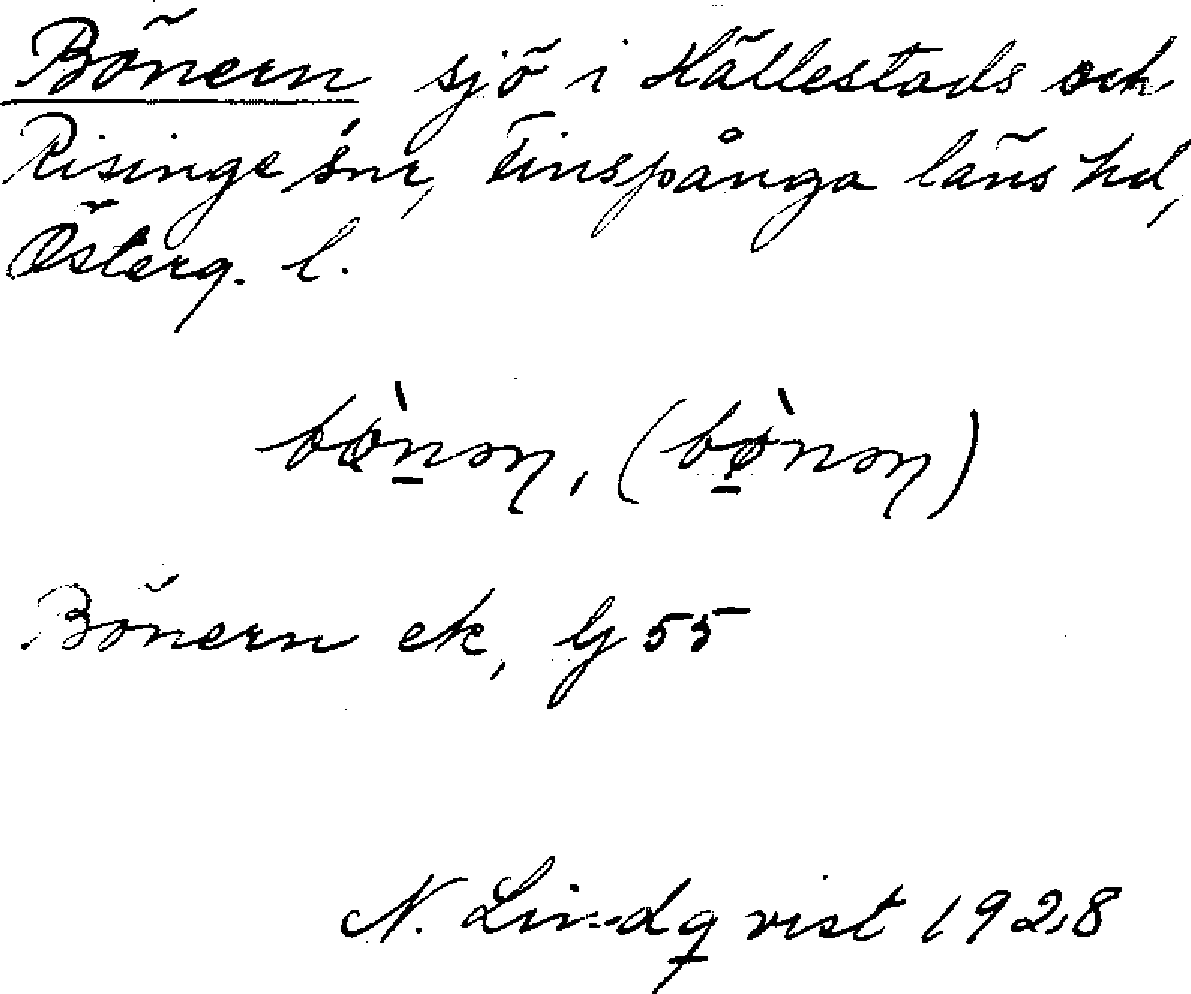 Bönern, sjö i Hällestads och
Risinge snr, Finspånga läns hd,
Österg. l.
bø̀nəɳ, (bø̀nəɳ)
Bönern ek, bl 55
N. Lindqvist 1928